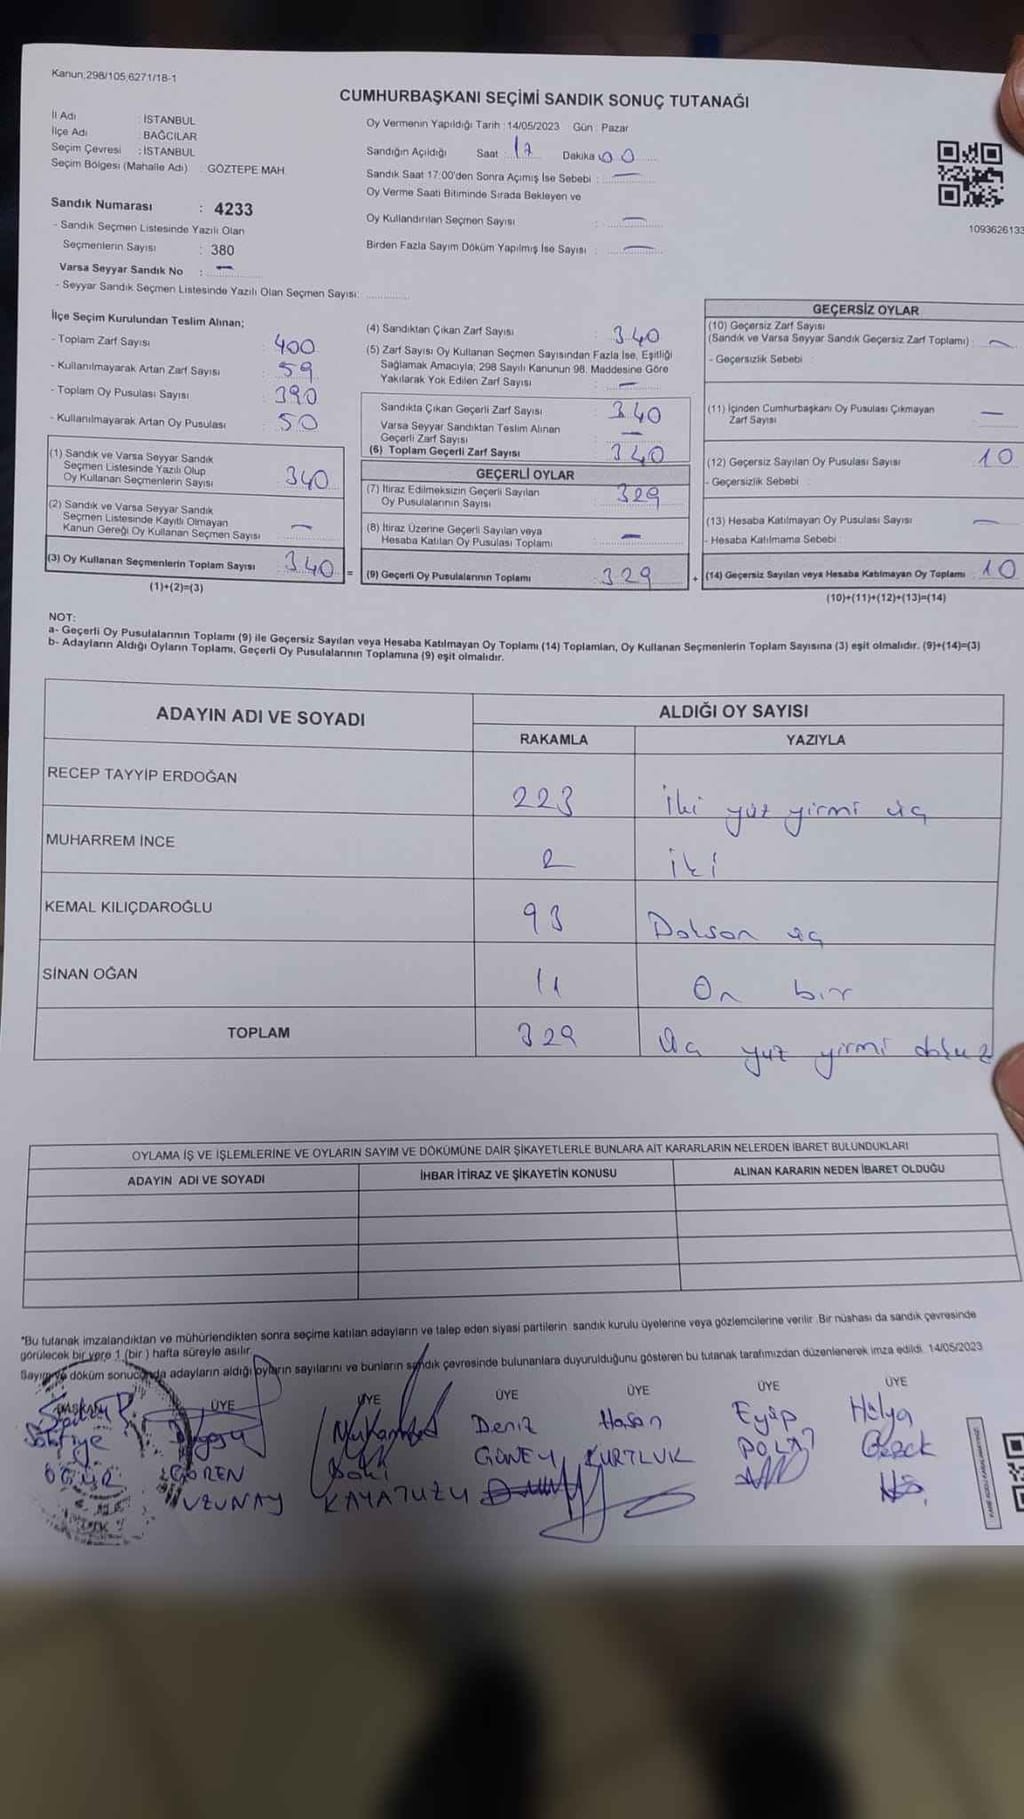 Kanun;298/105,6271/18-1
CUMHURBAŞKANI SEÇİMİ SANDIK SONUÇ TUTANAĞI
İl Adı : İSTANBUL
İlçe Adı : BAĞCILAR
Seçim Çevresi : İSTANBUL
Seçim Bölgesi (Mahalle Adı) : GÖZTEPE MAH
Sandık Numarası : 4233
- Sandık Seçmen Listesinde Yazılı Olan
Seçmenlerin Sayısı : 380
Varsa Seyyar Sandık No : —
- Seyyar Sandık Seçmen Listesinde Yazılı Olan Seçmen Sayısı:
Oy Vermenin Yapıldığı Tarih : 14/05/2023 Gün : Pazar
Sandığın Açıldığı Saat 17 Dakika 00
Sandık Saat 17:00'den Sonra Açımış İse Sebebi : —
Oy Verme Saati Bitiminde Sırada Bekleyen ve
Oy Kullandırılan Seçmen Sayısı : —
Birden Fazla Sayım Döküm Yapılmış İse Sayısı : —
1093626133
İlçe Seçim Kurulundan Teslim Alınan;
- Toplam Zarf Sayısı : 400
- Kullanılmayarak Artan Zarf Sayısı : 59
- Toplam Oy Pusulası Sayısı : 390
- Kullanılmayarak Artan Oy Pusulası : 50
(1) Sandık ve Varsa Seyyar Sandık
Seçmen Listesinde Yazılı Olup
Oy Kullanan Seçmenlerin Sayısı : 340
(2) Sandık ve Varsa Seyyar Sandık
Seçmen Listesinde Kayıtlı Olmayan
Kanun Gereği Oy Kullanan Seçmen Sayısı : —
(3) Oy Kullanan Seçmenlerin Toplam Sayısı : 340 =
(1)+(2)=(3)
(4) Sandıktan Çıkan Zarf Sayısı : 340
(5) Zarf Sayısı Oy Kullanan Seçmen Sayısından Fazla İse, Eşitliği
Sağlamak Amacıyla; 298 Sayılı Kanunun 98. Maddesine Göre
Yakılarak Yok Edilen Zarf Sayısı : —
Sandıkta Çıkan Geçerli Zarf Sayısı : 340
Varsa Seyyar Sandıktan Teslim Alınan
Geçerli Zarf Sayısı : —
(6) Toplam Geçerli Zarf Sayısı : 340
GEÇERLİ OYLAR
(7) İtiraz Edilmeksizin Geçerli Sayılan
Oy Pusulalarının Sayısı : 329
(8) İtiraz Üzerine Geçerli Sayılan veya
Hesaba Katılan Oy Pusulası Toplamı : —
(9) Geçerli Oy Pusulalarının Toplamı : 329 +
GEÇERSİZ OYLAR
(10) Geçersiz Zarf Sayısı
(Sandık ve Varsa Seyyar Sandık Geçersiz Zarf Toplamı) : —
- Geçersizlik Sebebi
(11) İçinden Cumhurbaşkanı Oy Pusulası Çıkmayan
Zarf Sayısı : —
(12) Geçersiz Sayılan Oy Pusulası Sayısı : 10
- Geçersizlik Sebebi :
(13) Hesaba Katılmayan Oy Pusulası Sayısı : —
- Hesaba Katılmama Sebebi :
(14) Geçersiz Sayılan veya Hesaba Katılmayan Oy Toplamı : 10
(10)+(11)+(12)+(13)=(14)
NOT:
a- Geçerli Oy Pusulalarının Toplamı (9) ile Geçersiz Sayılan veya Hesaba Katılmayan Oy Toplamı (14) Toplamları, Oy Kullanan Seçmenlerin Toplam Sayısına (3) eşit olmalıdır. (9)+(14)=(3)
b- Adayların Aldığı Oyların Toplamı, Geçerli Oy Pusulalarının Toplamına (9) eşit olmalıdır.
ADAYIN ADI VE SOYADI ALDIĞI OY SAYISI
RAKAMLA YAZIYLA
RECEP TAYYİP ERDOĞAN 223 iki yüz yirmi üç
MUHARREM İNCE 2 iki
KEMAL KILIÇDAROĞLU 93 Doksan üç
SİNAN OĞAN 11 On bir
TOPLAM 329 üç yüz yirmi dokuz
OYLAMA İŞ VE İŞLEMLERİNE VE OYLARIN SAYIM VE DÖKÜMÜNE DAİR ŞİKAYETLERLE BUNLARA AİT KARARLARIN NELERDEN İBARET BULUNDUKLARI
ADAYIN ADI VE SOYADI İHBAR İTİRAZ VE ŞİKAYETİN KONUSU ALINAN KARARIN NEDEN İBARET OLDUĞU
*Bu tutanak imzalandıktan ve mühürlendikten sonra seçime katılan adayların ve talep eden siyasi partilerin sandık kurulu üyelerine veya gözlemcilerine verilir. Bir nüshası da sandık çevresinde
görülecek bir yere 1 (bir ) hafta süreyle asılır.
Sayım ve döküm sonucunda adayların aldığı oyların sayılarını ve bunların sandık çevresinde bulunanlara duyurulduğunu gösteren bu tutanak tarafımızdan düzenlenerek imza edildi. 14/05/2023
BAŞKAN ÜYE ÜYE ÜYE ÜYE ÜYE ÜYE
Muhammed Deniz Hasan Eyüp Hülya
GÖREN GÜNEY KURTLUK POLAT
UZUNAY KAYATUZU